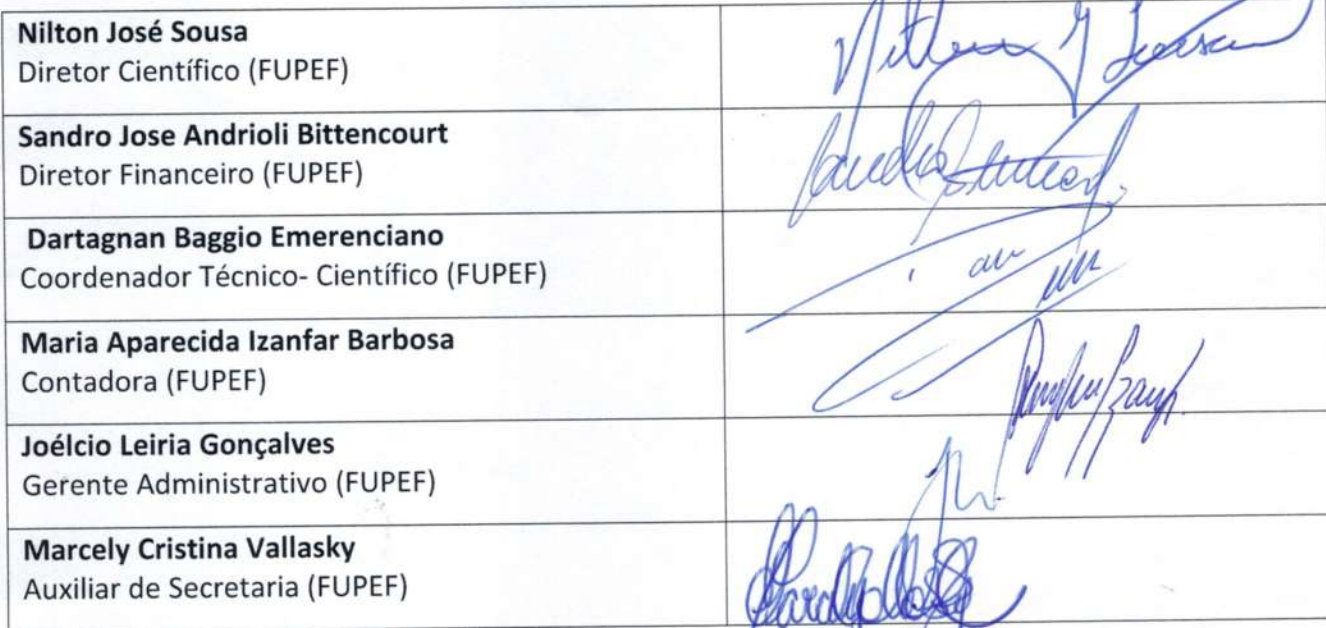 Nilton José Sousa
Diretor Científico (FUPEF)
Sandro Jose Andrioli Bittencourt
Diretor Financeiro (FUPEF)
Dartagnan Baggio Emerenciano
Coordenador Técnico- Científico (FUPEF)
Maria Aparecida Izanfar Barbosa
Contadora (FUPEF)
Joélcio Leiria Gonçalves
Gerente Administrativo (FUPEF)
Marcely Cristina Vallasky
Auxiliar de Secretaria (FUPEF)